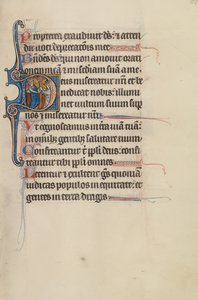 Propterea exaudivit deus et atten
dit voci deprecationis mee
Benedictus deus qui non amovit orati
onem meam et misericordiam suam a me
Deus misereatur nostri et be
nedicat nobis illumi
net vultum suum sup
nos et misereatur nostri
Ut cognoscamus in terra viam tuam
in omnibus gentibus salutare tuum
Confiteantur tibi populi deus confi
teantur tibi populi omnes
Letentur et exultent gentes quoniam
iudicas populos in equitate et
gentes in terra dirigis